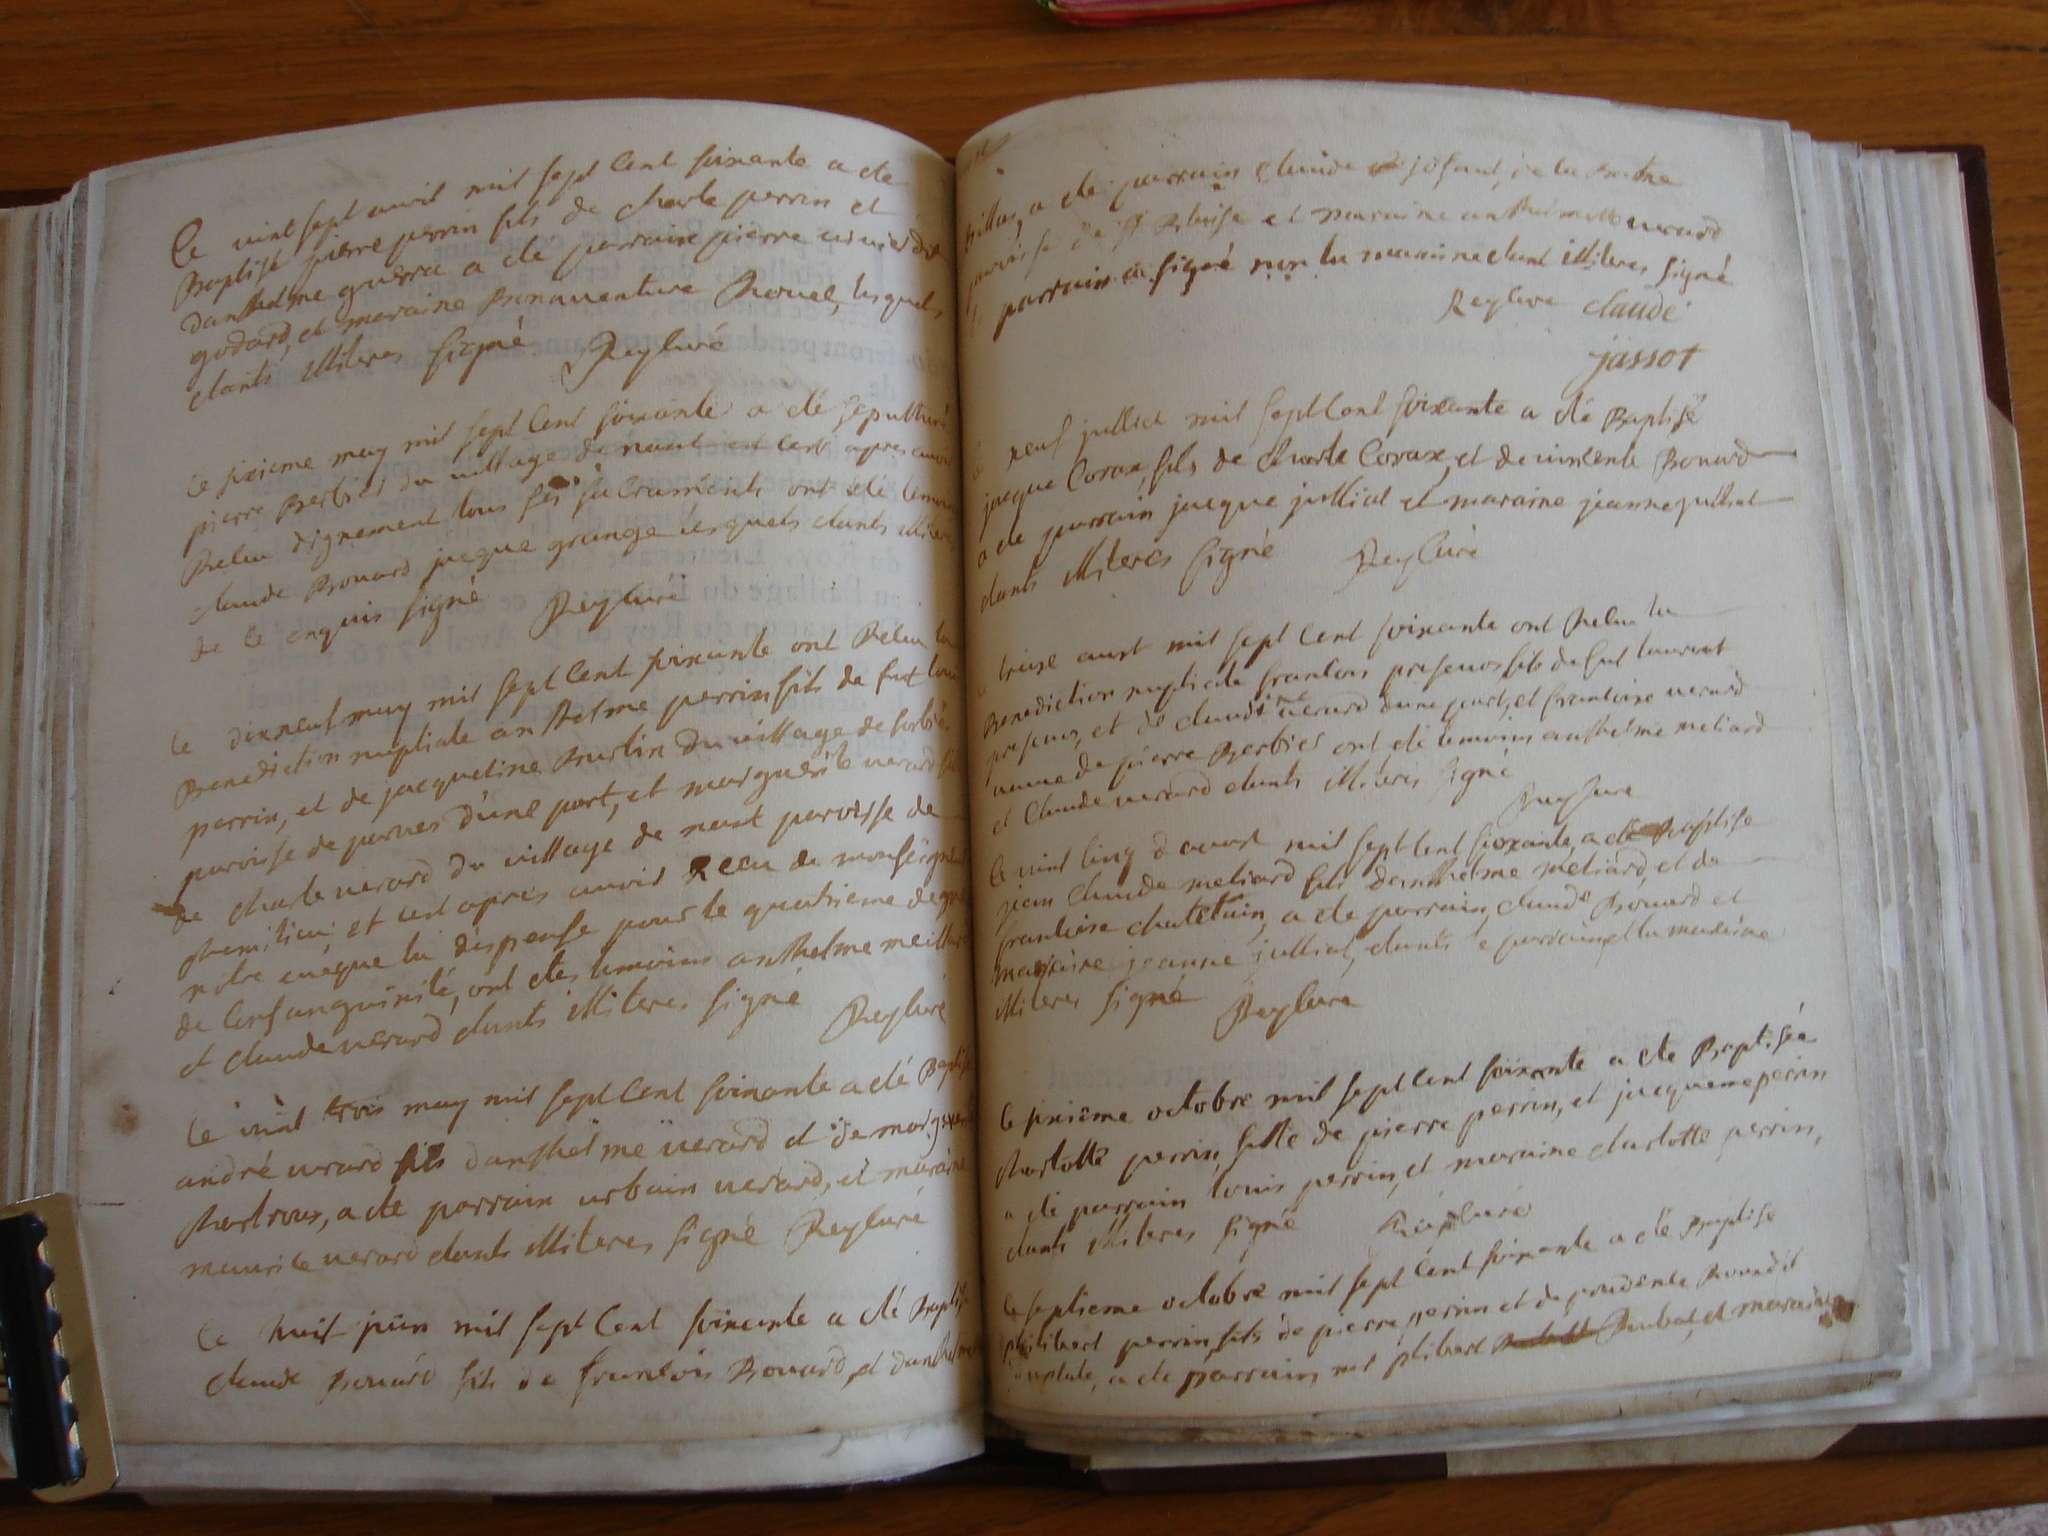 Ce vint sept avril mil sept Cent soixante a ete
Baptisé pierre perrin fils de charle perrin et
danthelme guerra a ete parrain pierre
godard, et maraine Bonaventure Bouel, lesquels
etants illiteres signé Reyluré
Ce sixieme may mil sept Cent soixante a eté sepulturé
pierre Berbiet du village de nant et cest apres avoir
Recu dignement tous ses sacraments ont eté temoins
claude Bouard jacque grange lesquels etants illiteres
de ce enquis signé Reyluré
le dixneuf may mil sept Cent soixante ont Recu la
Benediction nuptiale anthelme perrin fils de fut louis
perrin, et de jacqueline Burlin du village de sorbier
paroisse de parves d'une part, et marguerite verard fille
de charle verard du village de nant paroisse de
et cest apres avoir Recu de monseigneur
nôtre eveque la dispense pour le quatrieme degré
de Consanguinité, ont etes temoins anthelme
et claude verard etants illiteres signé Reyluré
le vint trois may mil sept Cent soixante a eté Baptisé
andré verard fils danthelme verard et de
a ete parrain urbain verard, et maraine
maurise verard etants illiteres signé Reyluré
Ce huit juin mil sept Cent soixante a eté Baptisé
claude Bouard fils de francois Bouard et danthelme
a eté parrain claude de la
paroisse de St Blaise et maraine anthelmette verard
parrain a signé non la maraine etant illiteres signé
Reylure claude
jassot
neuf julliet mil sept Cent soixante a eté Baptisé
jacque Corax, fils de charle Corax, et de vincente Bouard
a ete parrain jacque julliat et maraine jeanne julliat
etants illiteres signé Reyluré
treise aust mil sept Cent soixante ont Recu la
Benediction nuptiale francois fils de fut laurent
et de claudine verard dune part, et francoise verard
veuve de pierre Berbiet ont eté temoins anthelme meliard
et claude verard etants illiteres signé
Reylure
le vint Cinq d aoust mil sept Cent soixante, a ete Baptise
jean claude meliard fils danthelme meliard, et de
francoise chatelain, a ete parrain, claude Bouard et
maraine jeanne julliat, etants le parrain et la maraine
illiteres signé Reylure
le sixieme octobre mil sept Cent soixante a ete Baptisée
charlotte perrin, fille de pierre perrin, et jacqueme perrin
a eté parrain louis perrin, et maraine charlotte perrin,
etants illiteres signé Reyluré
le septieme octobre mil sept Cent soixante a eté Baptise
philibert perrin, fils de pierre perrin et de prudente
a ete parrain, et maraine